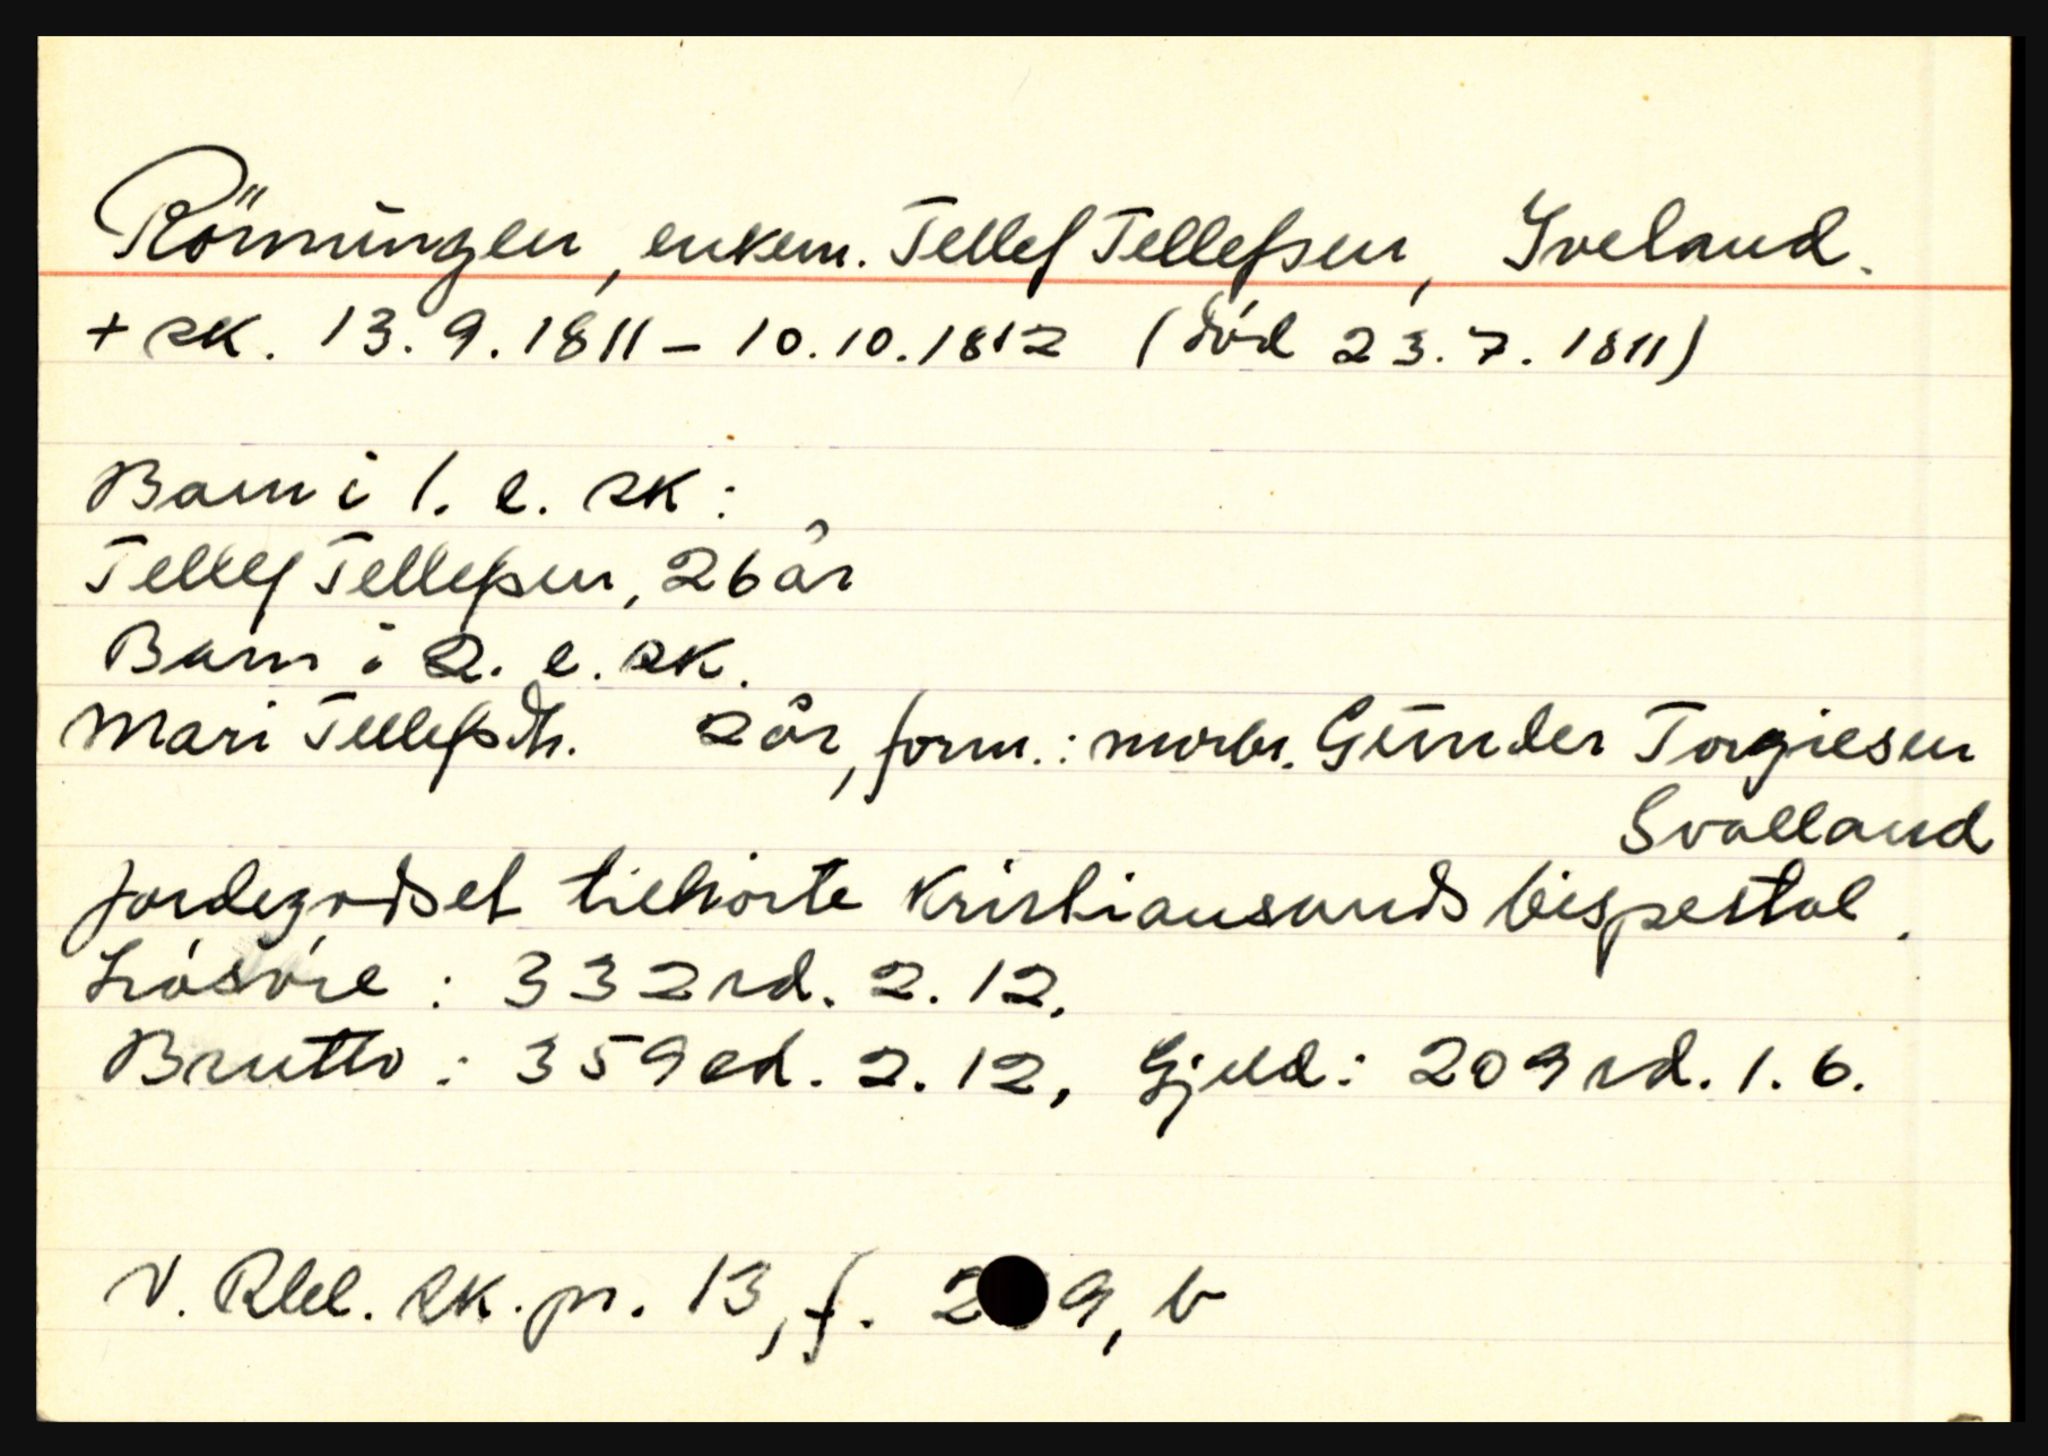 Rönningen, enkem. Tellef Tellefsen, Iveland.
+ sk. 13.9.1811 – 10.10.1812 (död 23.7.1811)
Barn i 1. e. sk:
Tellef Tellefsen, 26 år
Barn i 2. e. sk.
Mari Tellefsdtr. 2 år, form.: morbr. Gunder Torgiesen
Svalland
Jordegodset tilhörte Kristiansands bispestol.
Lösöre: 332 rd. 2. 12.
Brutto: 359 rd. 2. 12, Gjeld: 209 rd. 1. 6.
V. Rbl. sk. pr. 13, f. 2 9, b